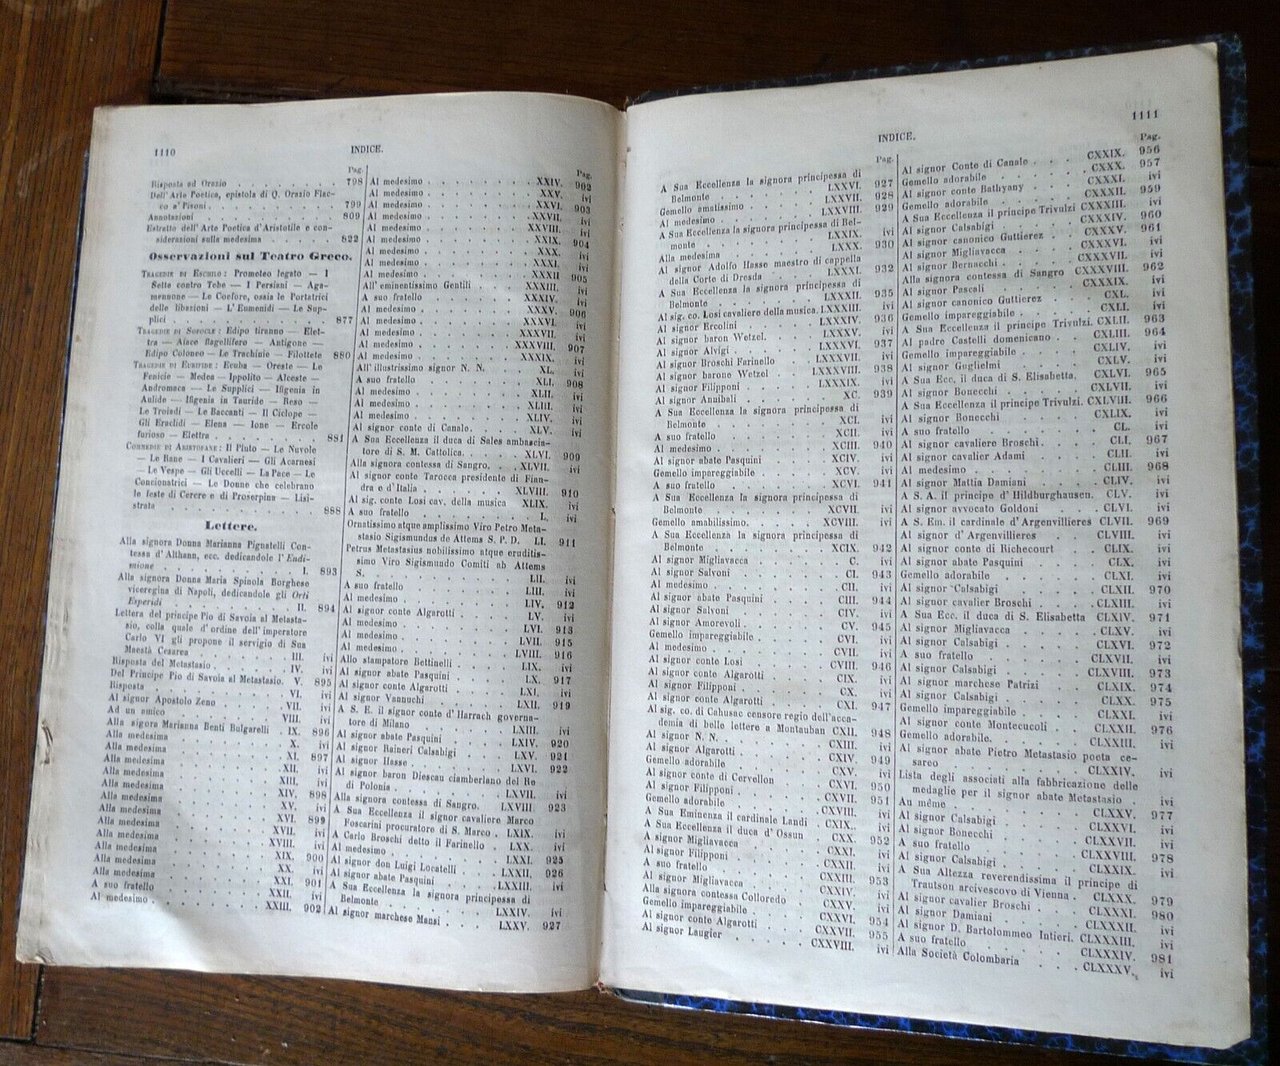 1110
INDICE.
Pag.
Risposta ad Orazio . . . . . . . . 798
Dell'Arte Poetica, epistola di Q. Orazio Flac-
co a' Pisoni. . . . . . . . . . 799
Annotazioni . . . . . . . . . 809
Estratto dell'Arte Poetica d'Aristotile e con-
siderazioni sulla medesima . . . . . 822
Osservazioni sul Teatro Greco.
TRAGEDIE DI ESCHILO: Prometeo legato — I
Sette contro Tebe — I Persiani — Aga-
mennone — Le Coefore, ossia le Portatrici
delle libazioni — L'Eumenidi — Le Sup-
plici . . . . . . . . . . . 877
TRAGEDIE DI SOFOCLE: Edipo tiranno — Elet-
tra — Aiace flagellifero — Antigone —
Edipo Coloneo — Le Trachinie — Filottete 880
TRAGEDIE DI EURIPIDE: Ecuba — Oreste — Le
Fenicie — Medea — Ippolito — Alceste —
Andromaca — Le Supplici — Ifigenia in
Aulide — Ifigenia in Tauride — Reso —
Le Troiadi — Le Baccanti — Il Ciclope —
Gli Eraclidi — Elena — Ione — Ercole
furioso — Elettra . . . . . . . . 881
COMMEDIE DI ARISTOFANE: Il Pluto — Le Nuvole
— Le Rane — I Cavalieri — Gli Acarnesi
— Le Vespe — Gli Uccelli — La Pace — Le
Concionatrici — Le Donne che celebrano
le feste di Cerere e di Proserpina — Lisi-
strata . . . . . . . . . . . 888
Lettere.
Alla signora Donna Marianna Pignatelli Con-
tessa d'Althann, ecc. dedicandole l'Endi-
mione . . . . . . . . . I. 893
Alla signora Donna Maria Spinola Borghese
viceregina di Napoli, dedicandole gli Orti
Esperidi . . . . . . . . II. 894
Lettera del principe Pio di Savoia al Metasta-
sio, colla quale d'ordine dell'imperatore
Carlo VI gli propone il servigio di Sua
Maestà Cesarea . . . . . . III. ivi
Risposta del Metastasio . . . . . IV. ivi
Del Principe Pio di Savoia al Metastasio. V. 895
Risposta . . . . . . . . VI. ivi
Al signor Apostolo Zeno . . . . VII. ivi
Ad un amico . . . . . . . VIII. ivi
Alla signora Marianna Benti Bulgarelli . IX. 896
Alla medesima . . . . . . . X. ivi
Alla medesima . . . . . . . XI. 897
Alla medesima . . . . . . . XII. ivi
Alla medesima . . . . . . . XIII. ivi
Alla medesima . . . . . . . XIV. 898
Alla medesima . . . . . . . XV. ivi
Alla medesima . . . . . . . XVI. 899
Alla medesima . . . . . . . XVII. ivi
Alla medesima . . . . . . . XVIII. ivi
Alla medesima . . . . . . . XIX. 900
Alla medesima . . . . . . . XX. ivi
Alla medesima . . . . . . . XXI. 901
A suo fratello . . . . . . . XXII. ivi
Al medesimo . . . . . . . XXIII. 902
Pag.
Al medesimo . . . . . . . XXIV. 902
Al medesimo . . . . . . . XXV. ivi
Al medesimo . . . . . . . XXVI. 903
Al medesimo . . . . . . . XXVII. ivi
Al medesimo . . . . . . . XXVIII. ivi
Al medesimo . . . . . . . XXIX. 904
Al medesimo . . . . . . . XXX. ivi
Al medesimo . . . . . . . XXXI. ivi
Al medesimo . . . . . . . XXXII 905
All'eminentissimo Gentili . . . . XXXIII. ivi
A suo fratello . . . . . . . XXXIV. ivi
Al medesimo . . . . . . . XXXV. 906
Al medesimo . . . . . . . XXXVI. ivi
Al medesimo . . . . . . . XXXVII. ivi
Al medesimo . . . . . . . XXXVIII. 907
Al medesimo . . . . . . . XXXIX. ivi
All'illustrissimo signor N. N. . . . XL. ivi
A suo fratello . . . . . . . XLI. 908
Al medesimo . . . . . . . XLII. ivi
Al medesimo . . . . . . . XLIII. ivi
Al medesimo . . . . . . . XLIV. ivi
Al signor conte di Canale. . . . . XLV. ivi
A Sua Eccellenza il duca di Sales ambascia-
tore di S. M. Cattolica. . . . . XLVI. 909
Alla signora contessa di Sangro. . . XLVII. ivi
Al signor conte Tarocca presidente di Fian-
dra e d'Italia . . . . . . XLVIII. 910
Al sig. conte Losi cav. della musica XLIX. ivi
A suo fratello . . . . . . . L. ivi
Ornatissimo atque amplissimo Viro Petro Meta-
stasio Sigismundus de Attems S. P. D. LI. 911
Petrus Metastasius nobilissimo atque eruditis-
simo Viro Sigismundo Comiti ab Attems
S. . . . . . . . . . LII. ivi
A suo fratello . . . . . . . LIII. ivi
Al medesimo . . . . . . . LIV. 912
Al signor conte Algarotti . . . . LV. ivi
Al medesimo . . . . . . . LVI. 913
Al medesimo . . . . . . . LVII. 915
Al medesimo . . . . . . . LVIII. 916
Allo stampatore Bettinelli . . . . LIX. ivi
Al signor abate Pasquini . . . . LX. 917
Al signor conte Algarotti . . . . LXI. ivi
Al signor Vannuchi . . . . . LXII. 919
A S. E. il signor conte d'Harrach governa-
tore di Milano . . . . . . LXIII. ivi
Al signor abate Pasquini . . . . LXIV. 920
Al signor Raineri Calsabigi . . . LXV. 921
Al signor Hasse . . . . . . LXVI. 922
Al signor baron Diescau ciamberlano del Re
di Polonia . . . . . . . LXVII. ivi
Alla signora contessa di Sangro. . LXVIII 923
A Sua Eccellenza il signor cavaliere Marco
Foscarini procuratore di S. Marco . LXIX. ivi
A Carlo Broschi detto il Farinello . LXX. ivi
Al medesimo . . . . . . . LXXI. 925
Al signor don Luigi Locatelli . . . LXXII. 926
Al signor abate Pasquini . . . . LXXIII. ivi
A Sua Eccellenza la signora principessa di
Belmonte . . . . . . . LXXIV. ivi
Al signor marchese Mansi . . . . LXXV. 927
1111
INDICE.
Pag.
A Sua Eccellenza la signora principessa di
Belmonte . . . . . . . LXXVI. 927
Gemello amatissimo . . . . . LXXVII. 928
Al medesimo . . . . . . . LXXVIII. 929
A Sua Eccellenza la signora principessa di Bel-
monte . . . . . . . . LXXIX. ivi
Alla medesima . . . . . . . LXXX. 930
Al signor Adolfo Hasse maestro di cappella
della Corte di Dresda . . . . LXXXI. 932
A Sua Eccellenza la signora principessa di
Belmonte . . . . . . . LXXXII. 935
Al sig. co. Losi cavaliere della musica. LXXXIII. ivi
Al signor Ercolini . . . . . LXXXIV. 936
Al signor baron Wetzel. . . . . LXXXV. ivi
Al signor Alvigi . . . . . . LXXXVI. 937
Al signor Broschi Farinello . . . LXXXVII. ivi
Al signor barone Wetzel . . . . LXXXVIII. 938
Al signor Filipponi . . . . . LXXXIX. ivi
Al signor Annibali . . . . . . XC. 939
A Sua Eccellenza la signora principessa di
Belmonte . . . . . . . XCI. ivi
A suo fratello . . . . . . . XCII. ivi
Al medesimo . . . . . . . XCIII. 940
Al signor abate Pasquini . . . . XCIV. ivi
Gemello impareggiabile . . . . . XCV. ivi
A suo fratello . . . . . . . XCVI. 941
A Sua Eccellenza la signora principessa di
Belmonte . . . . . . . XCVII. ivi
Gemello amabilissimo. . . . . . XCVIII. ivi
A Sua Eccellenza la signora principessa di
Belmonte . . . . . . . XCIX. 942
Al signor Migliavacca . . . . . C. ivi
Al signor Salvoni . . . . . . CI. 943
Al medesimo . . . . . . . CII. ivi
Al signor abate Pasquini . . . . CIII. 944
Al signor Salvoni . . . . . . CIV. ivi
Al signor Amorevoli . . . . . CV. 945
Gemello impareggiabile . . . . . CVI. ivi
Al medesimo . . . . . . . CVII. ivi
Al signor conte Losi . . . . . CVIII. 946
Al signor conte Algarotti . . . . CIX. ivi
Al signor Filipponi . . . . . CX. ivi
Al signor conte Algarotti . . . . CXI. 947
Al sig. co. di Cahusac censore regio dell'acca-
demia di belle lettere a Montauban CXII. 948
Al signor N. N. . . . . . . CXIII. ivi
Al signor Algarotti . . . . . CXIV 949
Gemello adorabile . . . . . . CXV. ivi
Al signor conte di Cervellon . . . CXVI. 950
Al signor Filipponi . . . . . CXVII. 951
Gemello adorabile . . . . . . CXVIII. ivi
A Sua Eminenza il cardinale Landi CXIX. ivi
A Sua Eccellenza il duca d'Ossun . CXX. 952
A signor Migliavacca . . . . . CXXI. ivi
Al signor Filipponi . . . . . CXXII. ivi
A suo fratello . . . . . . . CXXIII. 953
Al signor Migliavacca . . . . . CXXIV. ivi
Alla signora contessa Colloredo . . CXXV. ivi
Gemello impareggiabile . . . . . CXXVI. 954
Al signor conte Algarotti . . . . CXXVII. 955
Al signor Laugier . . . . . . CXXVIII. ivi
Pag.
Al signor Conte di Canale . . . . CXXIX. 956
Gemello adorabile . . . . . . CXXX. 957
Al signor conte Bathyany . . . . CXXXI. ivi
Gemello adorabile . . . . . . CXXXII. 959
A Sua Eccellenza il principe Trivulzi CXXXIII. ivi
Al signor Calsabigi . . . . . CXXXIV. 960
Al signor canonico Guttierez . . . CXXXV. 961
Al signor Migliavacca . . . . . CXXXVI. ivi
Al signor Bernacchi . . . . . CXXXVII. ivi
Alla signora contessa di Sangro CXXXVIII. 962
Al signor Pascali . . . . . . CXXXIX. ivi
Al signor canonico Guttierez . . . CXL. ivi
Gemello impareggibile . . . . . CXLI. ivi
A Sua Eccellenza il principe Trivulzi. CXLII. 963
Al padre Castelli domenicano . . . CXLIII. 964
Gemello impareggiabile . . . . . CXLIV. ivi
Al signor Guglielmi . . . . . CXLV. ivi
A Sua Ecc. il duca di S. Elisabetta. CXLVI. 965
Al signor Bonecchi . . . . . CXLVII. ivi
A Sua Eccellenza il principe Trivulzi. CXLVIII 966
Al signor Bonecchi . . . . . CXLIX. ivi
A suo fratello . . . . . . . CL. ivi
Al signor cavaliere Broschi. . . . CLI. 967
Al signor cavalier Adami . . . . CLII. ivi
Al medesimo . . . . . . . CLIII. 968
Al signor Mattia Damiani . . . . CLIV. ivi
A S. A. il principe d'Hildburghausen. CLV. ivi
Al signor avvocato Goldoni . . . CLVI. ivi
A S. Em. il cardinale d'Argenvillieres CLVII. 969
Al signor d'Argenvillieres . . . . CLVIII. ivi
Al signor conte di Richecourt . . . CLIX. ivi
Al signor abate Pasquini . . . . CLX. ivi
Gemello adorabile . . . . . . CLXI. ivi
Al signor Calsabigi . . . . . CLXII. 970
Al signor cavalier Broschi . . . . CLXIII. ivi
A Sua Ecc. il duca di S. Elisabetta CLXIV. 971
Al signor Migliavacca . . . . . CLXV. ivi
Al signor Calsabigi . . . . . CLXVI. 972
A suo fratello . . . . . . . CLXVII. ivi
Al signor Calsabigi . . . . . CLXVIII. 973
Al signor marchese Patrizi . . . CLXIX. 974
Al signor Calsabigi . . . . . CLXX. 975
Gemello impareggiabile . . . . . CLXXI. ivi
Al signor conte Montecucoli . . . CLXXII. 976
Gemello adorabile. . . . . . . CLXXIII. ivi
Al signor abate Pietro Metastasio poeta ce-
sareo . . . . . . . . CLXXIV. ivi
Lista degli associati alla fabbricazione delle
medaglie per il signor abate Metastasio . ivi
Au même . . . . . . . . CLXXV. 977
Al signor Calsabigi . . . . . CLXXVI. ivi
Al signor Bonecchi . . . . . CLXXVII. ivi
A suo fratello . . . . . . . CLXXVIII. 978
Al signor Calsabigi . . . . . CLXXIX. ivi
A Sua Altezza reverendissima il principe di
Trautson arcivescovo di Vienna . CLXXX. 979
Al signor cavalier Broschi . . . . CLXXXI. 980
Al signor Damiani . . . . . CLXXXII. ivi
Al signor D. Bartolommeo Intieri. CLXXXIII. ivi
A suo fratello . . . . . . . CLXXXIV. 981
Alla Società Colombaria . . . . CLXXXV. ivi